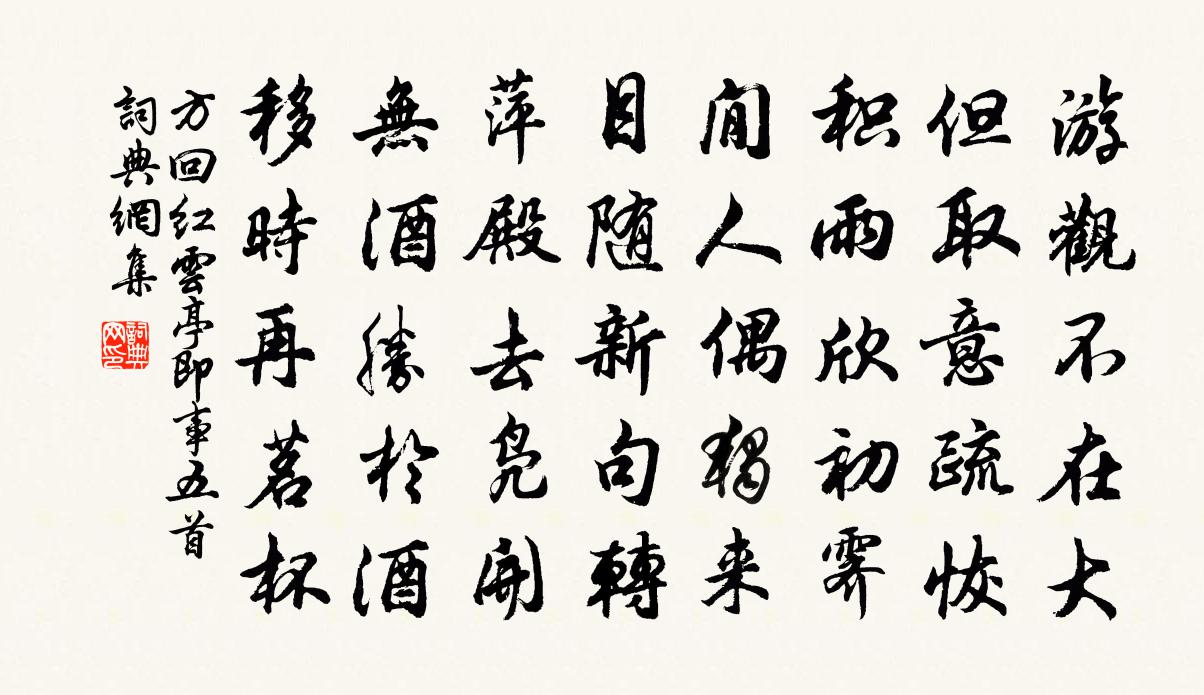 游觀不在大
但取意疏恢
积雨欣初霽
閒人偶獨来
目随新句轉
萍殿去凫開
無酒勝於酒
移時再茗杯
方回红雲亭即事五首
詞典網集
詞典网印